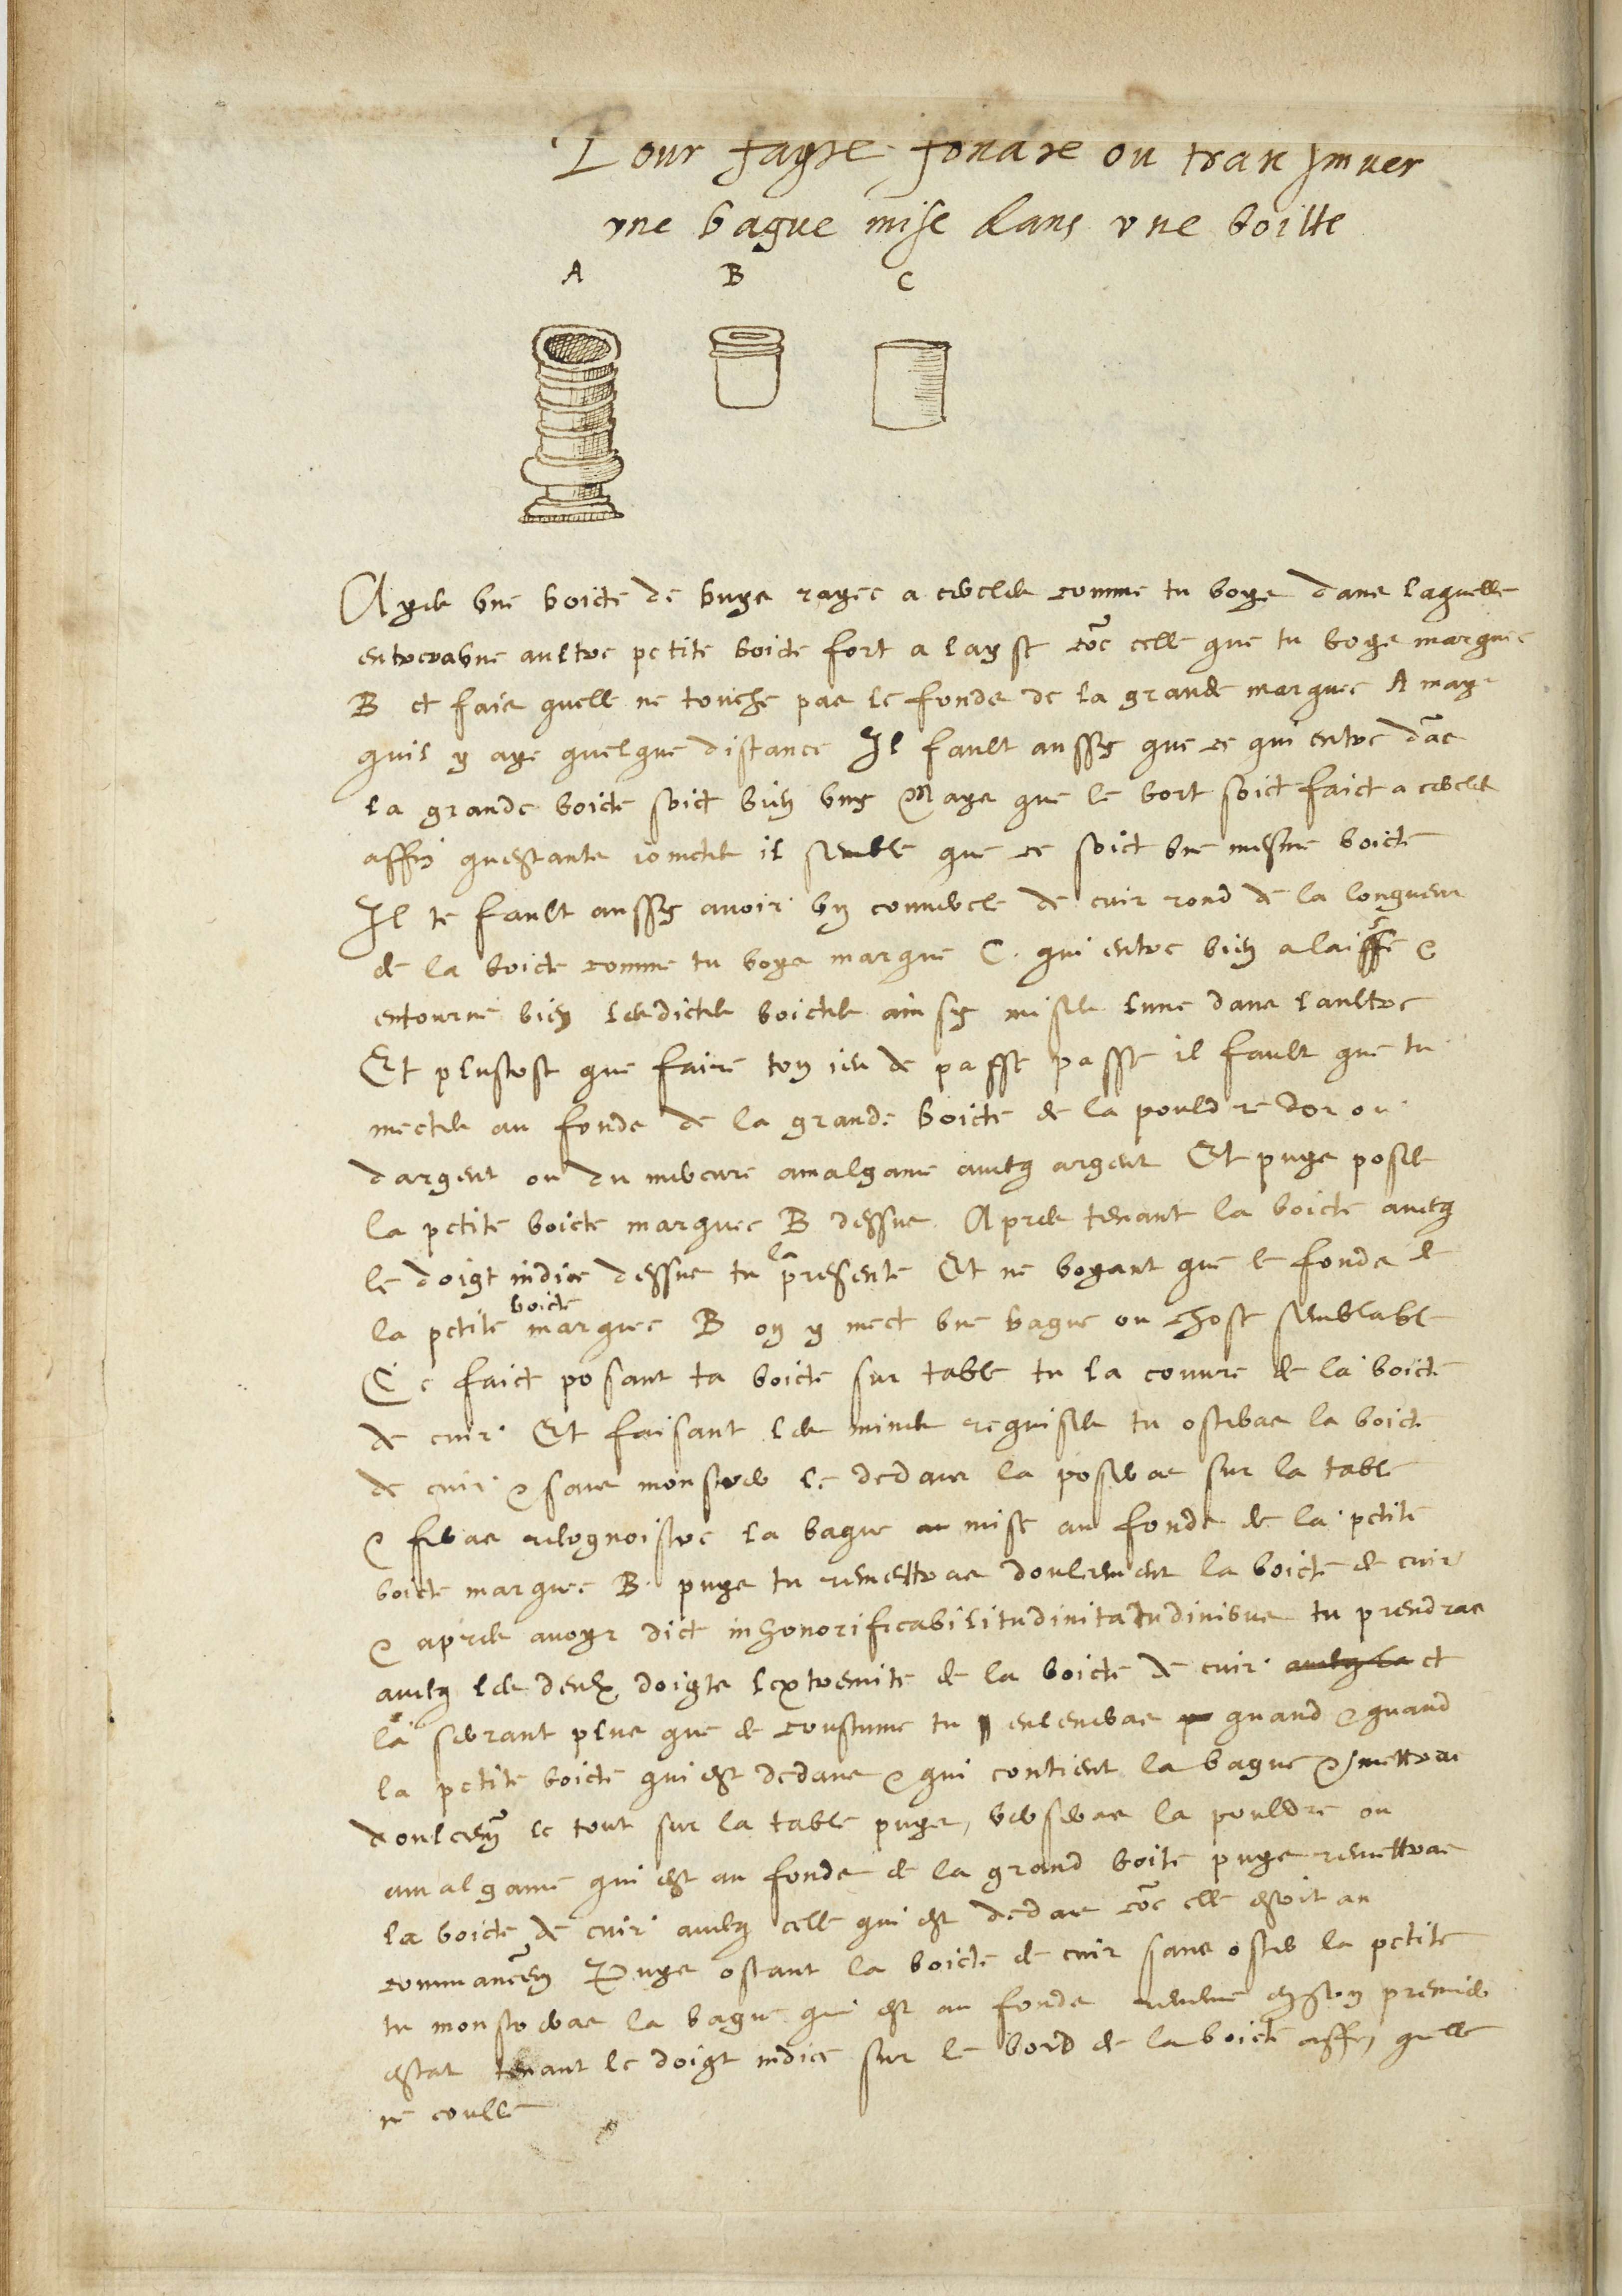 Pour fayre fondre ou transmuer
vne bague mise dans vne boitte
A B C
Ayes vne boicte de buys rayee a cercles comme tu voys dans laquelle
entrera vne aultre petite boicte fort a layse co͞e celle que tu voys marquee
B et fais quelle ne touche pas le fonds de la grande marquee A mays
quil y aye quelque distance Il fault aussy que ce qui entre da͞s
la grande boicte soict bien vny Mays que le bort soict faict a cercles
affin questants ioinctes il semble que ce soict vne mesme boicte
Il te fault aussy avoir vn couvercle de cuir rond de la longueur
de la boicte comme tu voys marque C. qui entre bien a laisse &
entourne bien lesdictes boictes ainsy mises lune dans laultre
Et plustost que faire ton ieu de passe passe il fault que tu
mectes au fonds de la grande boicte de la pouldre dor ou
dargent ou du mercure amalgame avecq argent Et puys poses
la petite boicte marquee B dessus Apres tenant la boicte avecq
le doigt indice dessus tu la presente Et ne voyant que le fonds de
la petite boicte marquee B on y mect vne bague ou chose semblable
Ce faict posant ta boicte sur table tu la couvre de la boicte
de cuir Et faisant les mines requises tu osteras la boicte
de cuir & sans monstrer le dedans la poseras sur la table
& feras recognoistre la bague mise au fonds de la petite
boicte marquee B puys tu remettras doulcement la boicte de cuir
& apres avoyr dict inhonorificabilitudinitatudinibus tu prendras
avecq les deux doigts lextremite de la boicte de cuir avecq la et
la serrant plus que de coustume tu enleveras quand & quand
la petite boicte qui est dedans & qui contient la bague & mettras
doulcem͞ le tout sur la table puys verseras la pouldre ou
amalgame qui est au fonds de la grand boite puys remettras
la boicte de cuir avecq celle qui est dedas co͞e elle estoit au
commance͞m Puys ostant la boicte de cuir sans oster la petite
tu monstreras la bague qui est au fonds revenue en son premier
estat tenant le doigt indice sur le bord de la boicte affin quelle
ne coulle